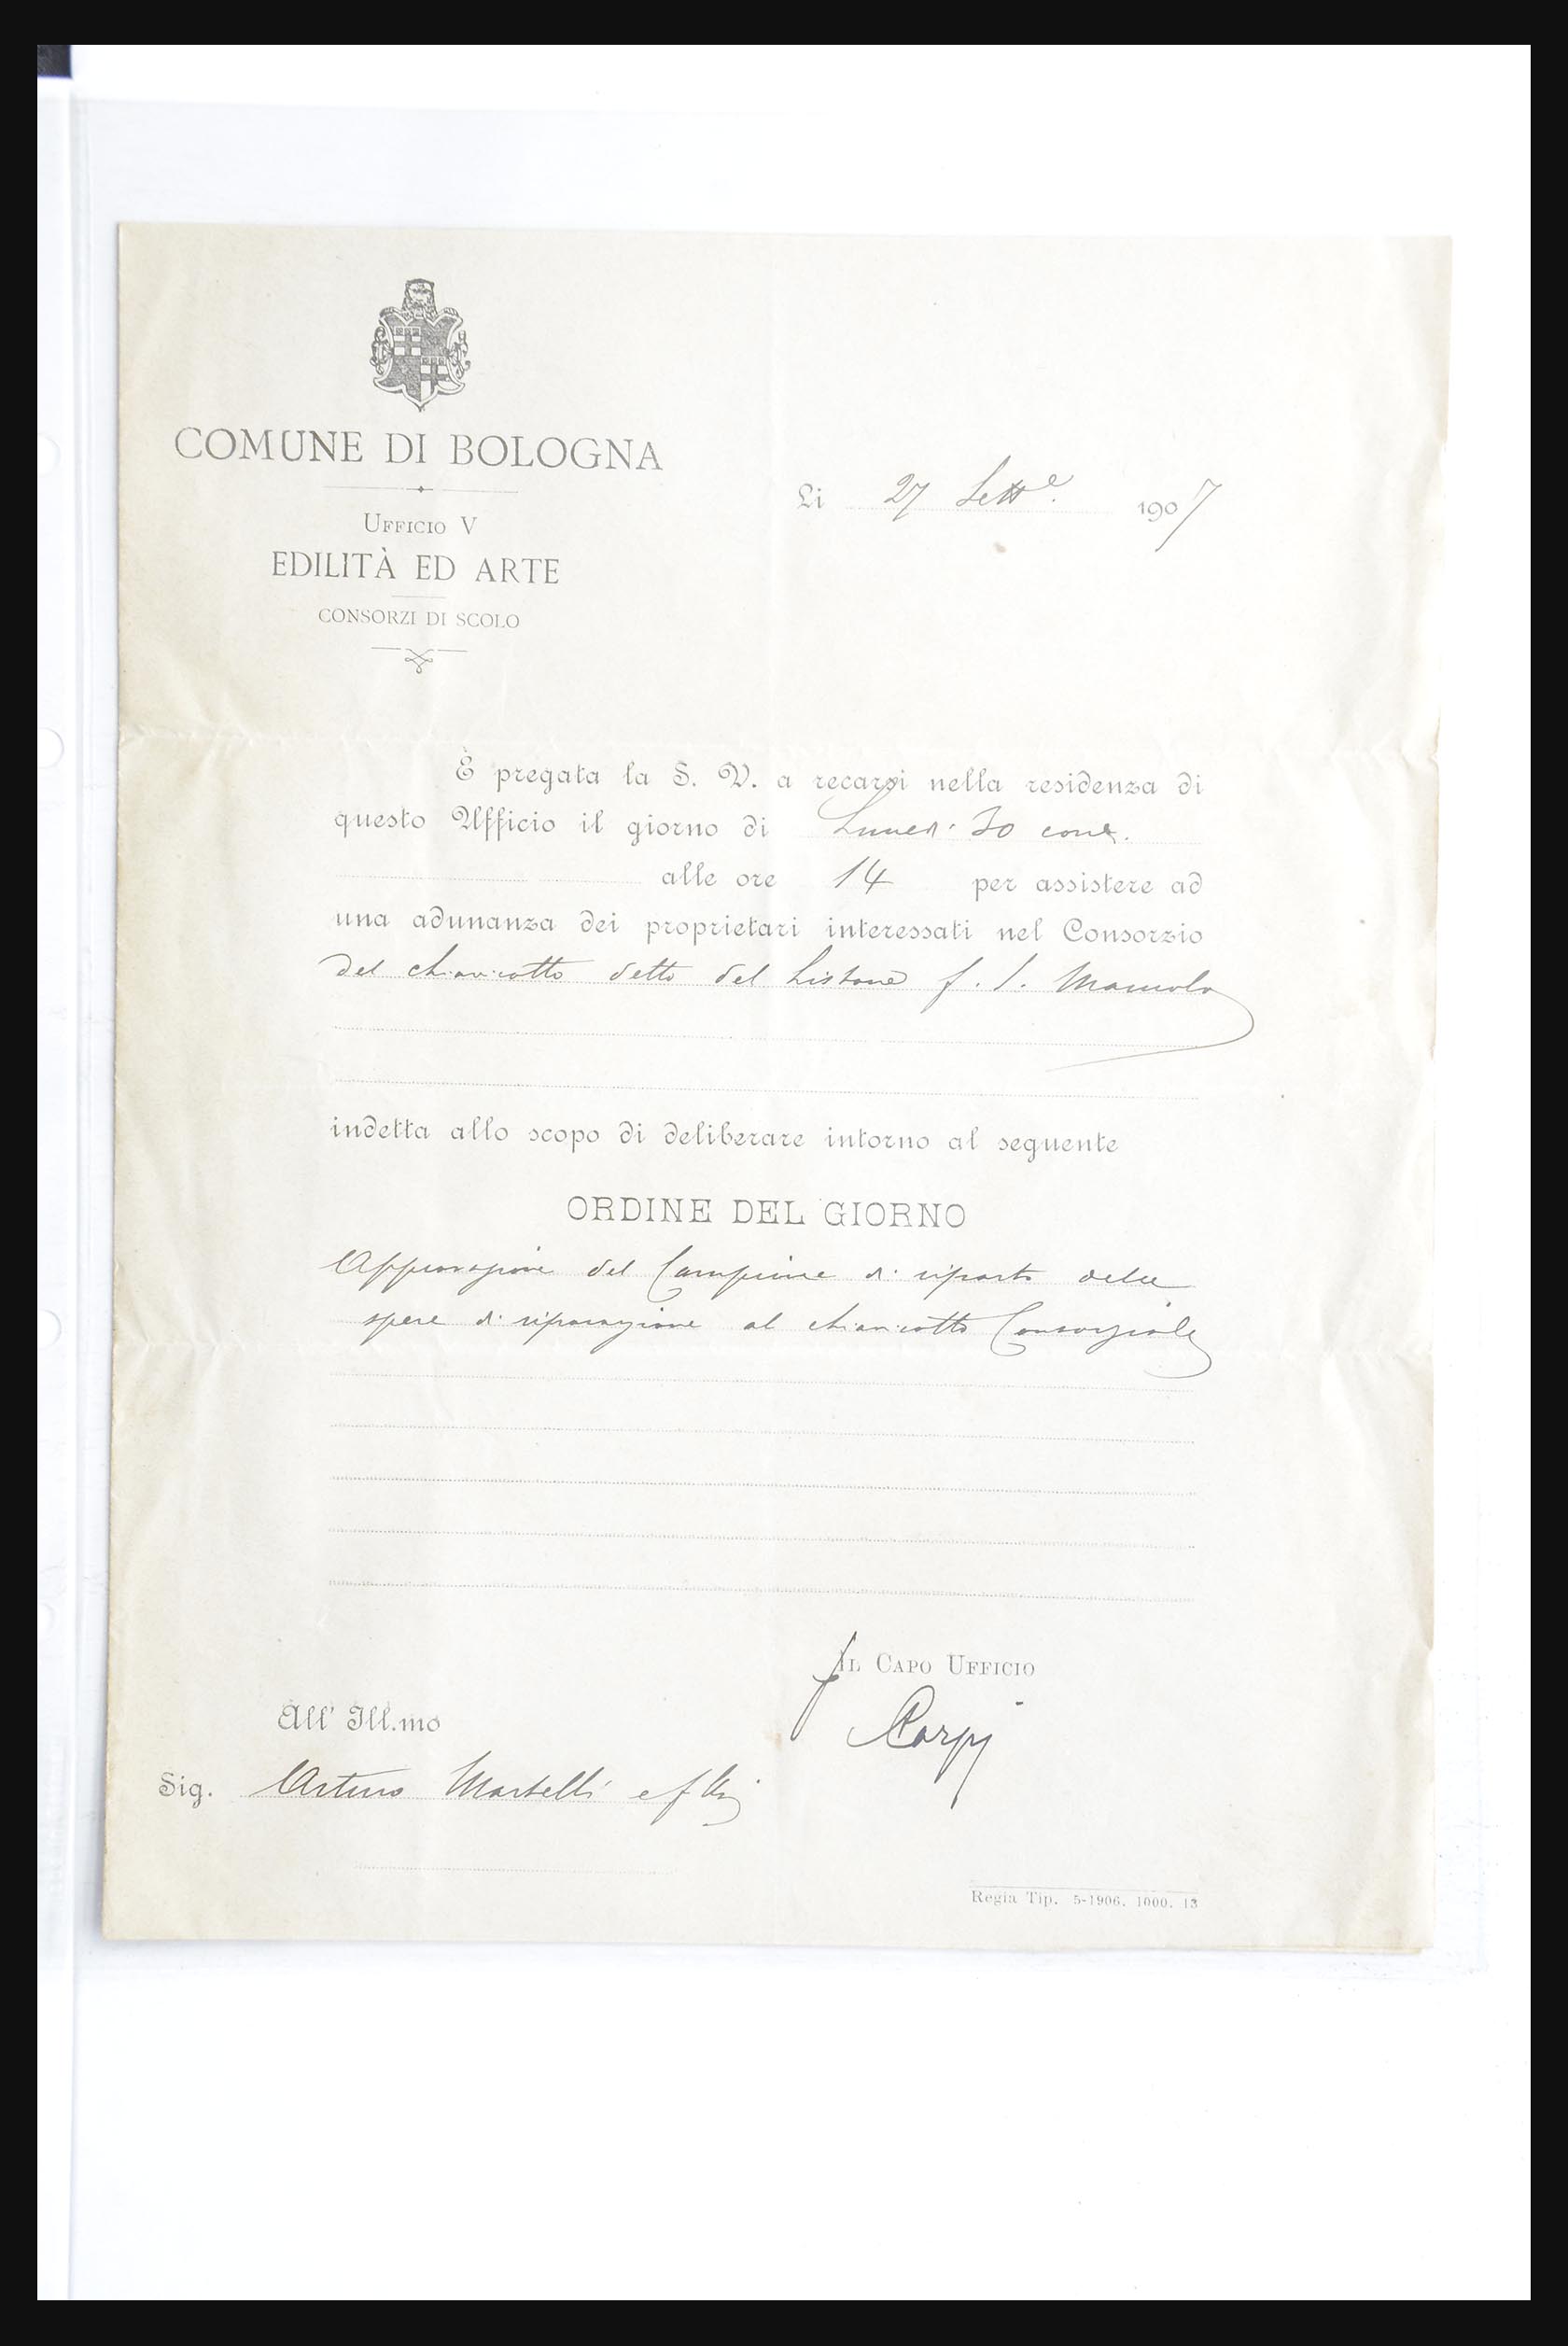 COMUNE DI BOLOGNA
Ufficio V
EDILITÀ ED ARTE
CONSORZI DI SCOLO
Li 27 Sett.e 1907
È pregata la S. V. a recarsi nella residenza di
questo Ufficio il giorno di Lunedì 30 corr.
alle ore 14 per assistere ad
una adunanza dei proprietari interessati nel Consorzio
del chiavicotto detto del Listone f. S. Mamolo
indetta allo scopo di deliberare intorno al seguente
ORDINE DEL GIORNO
Approvazione del Campione di riparto delle
spese di riparazione al chiavicotto Consorziale
Il Capo Ufficio
f Carpi
All' Ill.mo
Sig. Arturo Martelli e flli
Regia Tip. 5-1906. 1000. 13